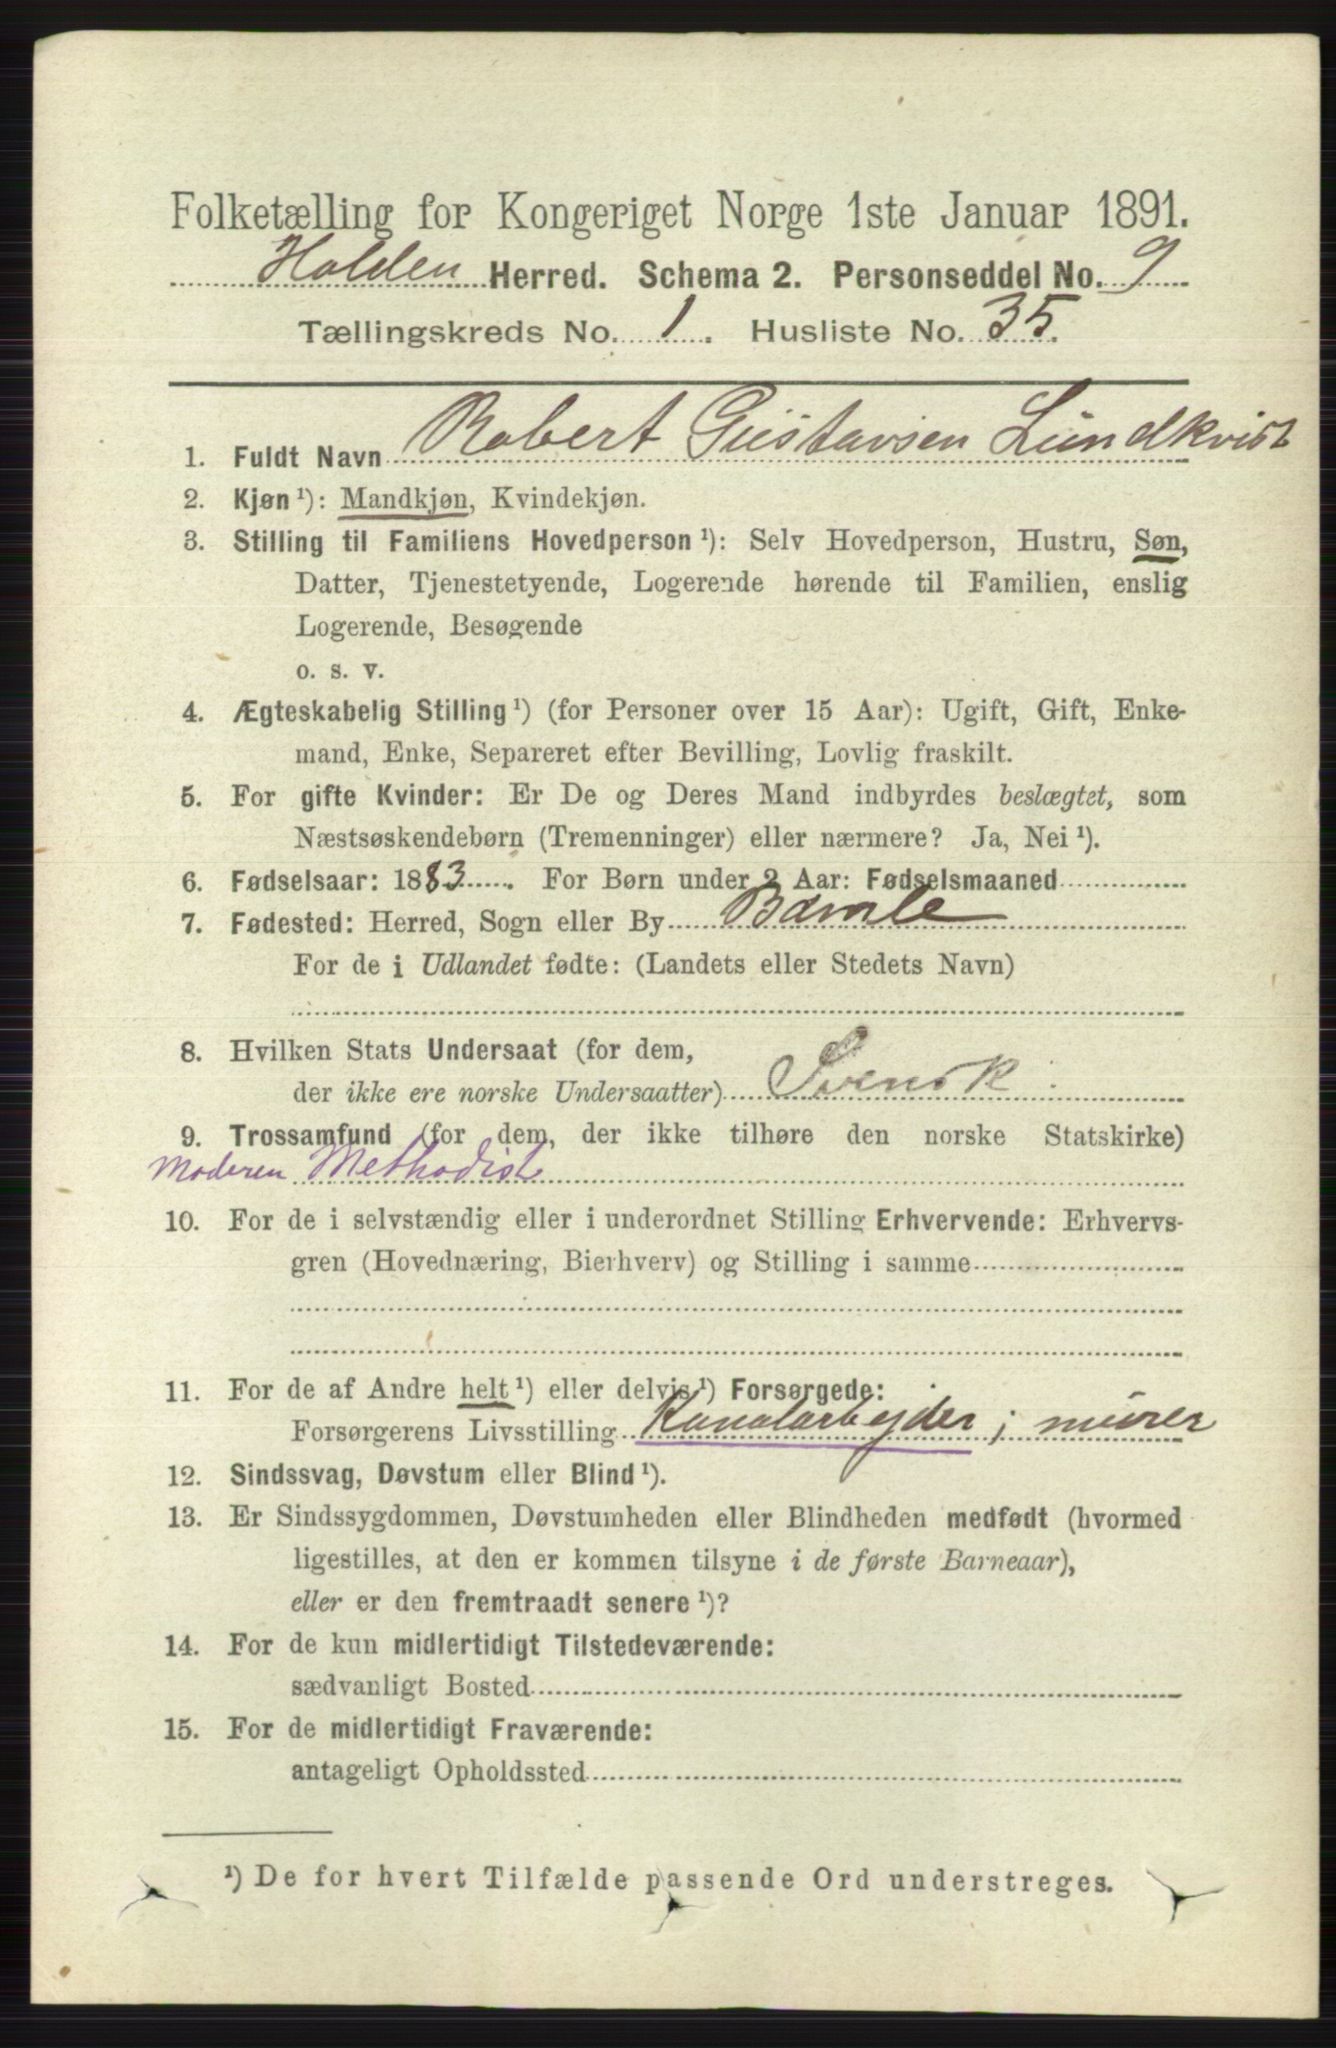 Folketælling for Kongeriget Norge 1ste Januar 1891.
Holden Herred. Schema 2. Personseddel No. 9
Tællingskreds No. 1. Husliste No. 35.
1. Fuldt Navn Robert Gustavsen Lundkvist
2. Kjøn ¹): Mandkjøn, Kvindekjøn.
3. Stilling til Familiens Hovedperson ¹): Selv Hovedperson, Hustru, Søn,
Datter, Tjenestetyende, Logerende hørende til Familien, enslig
Logerende, Besøgende
o. s. v.
4. Ægteskabelig Stilling ¹) (for Personer over 15 Aar): Ugift, Gift, Enke-
mand, Enke, Separeret efter Bevilling, Lovlig fraskilt.
5. For gifte Kvinder: Er De og Deres Mand indbyrdes beslægtet, som
Næstsøskendebørn (Tremenninger) eller nærmere? Ja, Nei ¹).
6. Fødselsaar: 1883. For Børn under 2 Aar: Fødselsmaaned
7. Fødested: Herred, Sogn eller By Bamle
For de i Udlandet fødte: (Landets eller Stedets Navn)
8. Hvilken Stats Undersaat (for dem,
der ikke ere norske Undersaatter) Svensk.
9. Trossamfund (for dem, der ikke tilhøre den norske Statskirke)
Moderen Methodist
10. For de i selvstændig eller i underordnet Stilling Erhvervende: Erhvervs-
gren (Hovednæring, Bierhverv) og Stilling i samme
11. For de af Andre helt ¹) eller delvis ¹) Forsørgede:
Forsørgerens Livsstilling Kanalarbejder; murer
12. Sindssvag, Døvstum eller Blind ¹).
13. Er Sindssygdommen, Døvstumheden eller Blindheden medfødt (hvormed
ligestilles, at den er kommen tilsyne i de første Barneaar),
eller er den fremtraadt senere ¹)?
14. For de kun midlertidigt Tilstedeværende:
sædvanligt Bosted
15. For de midlertidigt Fraværende:
antageligt Opholdssted
¹) De for hvert Tilfælde passende Ord understreges.